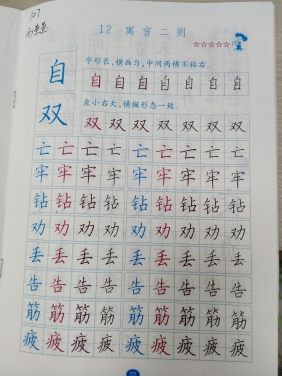 107
12 寓言二则
☆☆☆☆☆
自
字形长,横画匀,中间两横不粘右。
自自自自自自自自
双
左小右大,横撇形态一致。
双双双双双双双
亡亡亡亡亡亡亡亡亡
牢牢牢牢牢牢牢牢牢
钻钻钻钻钻钻钻钻钻
劝劝劝劝劝劝劝劝劝
丢丢丢丢丢丢丢丢丢
告告告告告告告告告
筋筋筋筋筋筋筋筋筋
疲疲疲疲疲疲疲疲疲